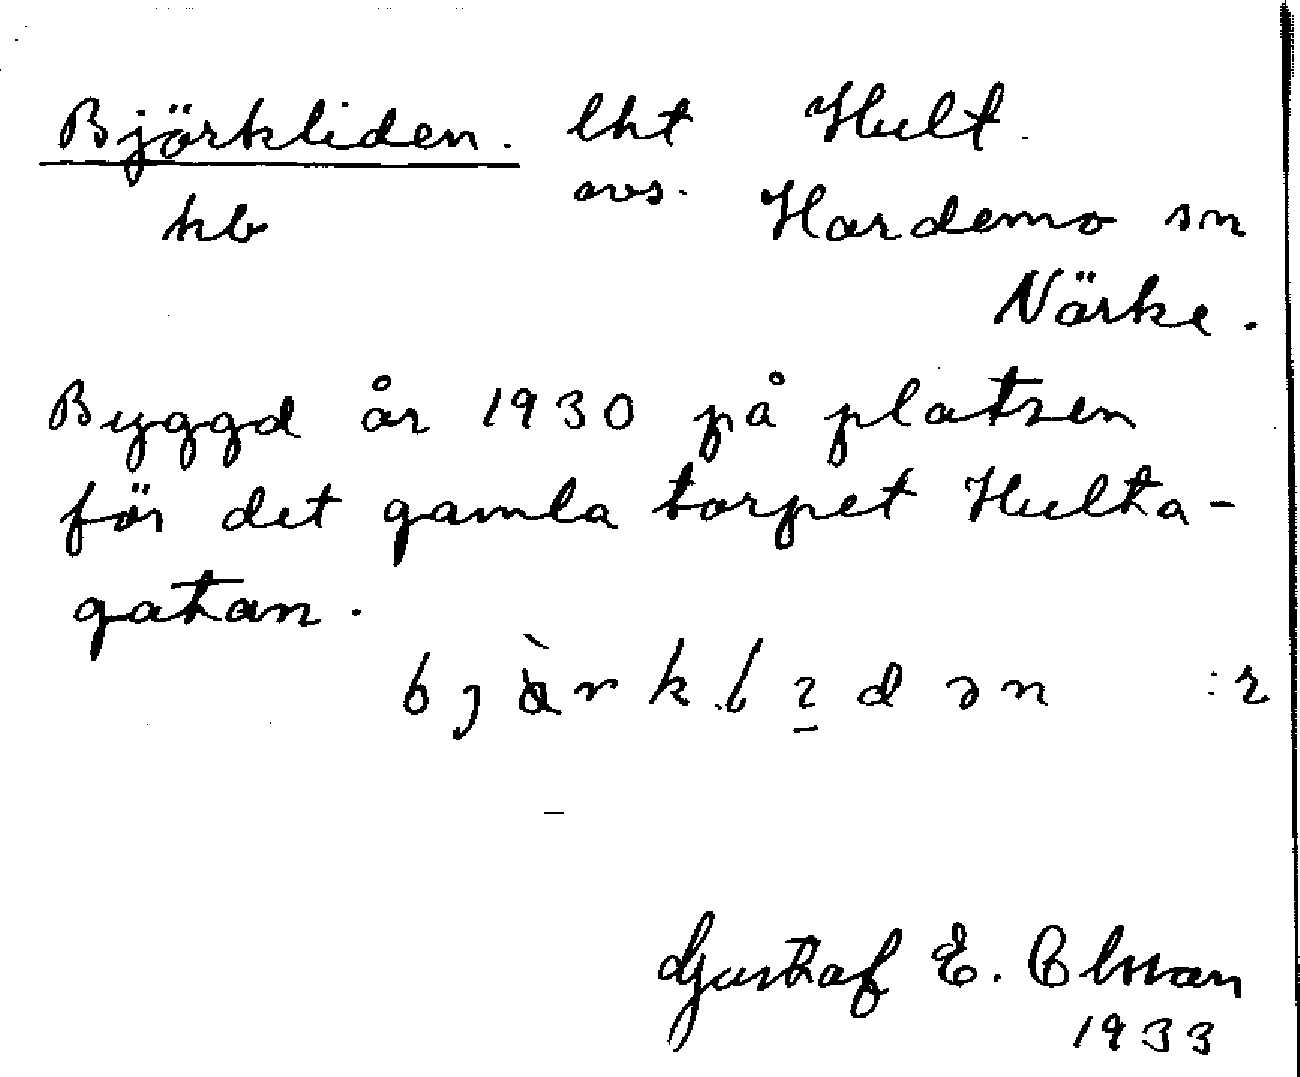 Björkliden. lht Hult.
kb avs. Hardemo sn
Närke.
Byggd år 1930 på platsen
för det gamla torpet Hulta-
gatan.
Gustaf E. Olsson
1933